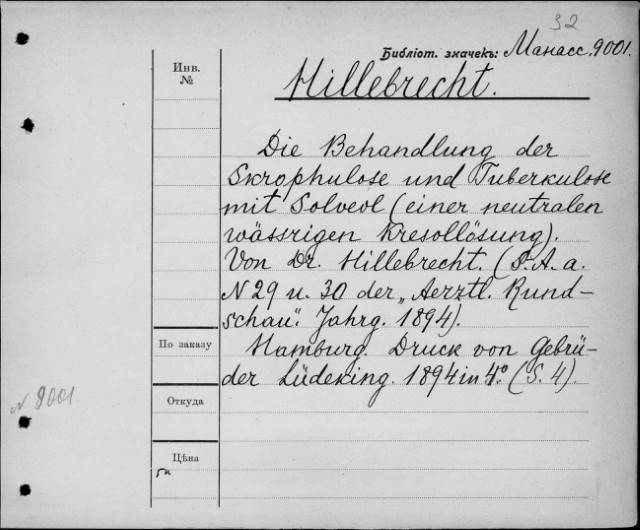 32
Библіот. значекъ: Манасс. 9001.
Инв.
№
Hillebrecht.
Die Behandlung der
Skrophulose und Tuberkulose
mit Solveol (einer neutralen
wässrigen Kresollösung).
Von Dr. Hillebrecht. (S. A. a.
N 29 u. 30 der „Aerztl. Rund-
schau“. Jahrg. 1894).
По заказу
Hamburg. Druck von Gebrü-
der Lüdeking. 1894 in 4° (S. 4).
N 9001
Откуда
Цѣна